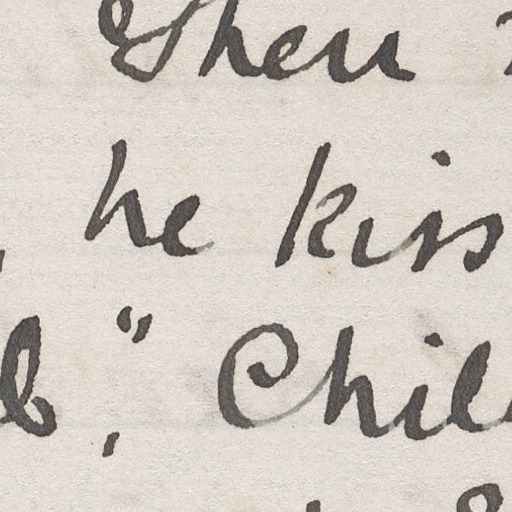 Then
he kiss
b," Chil